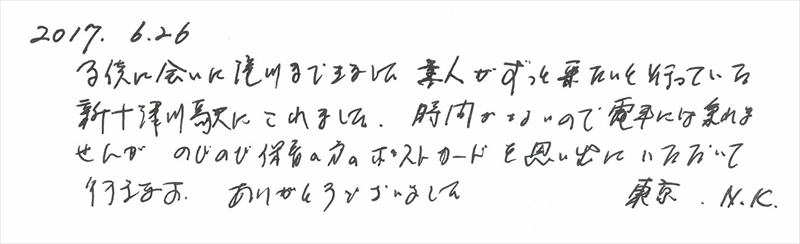 2017. 6.26
子供に会いに滝川まできました 主人がずっと来たいと行っていた
新十津川駅にこれました. 時間がないので電車には乗れま
せんが のびのび保育の方のポストカードを思い出にいただいて
行きます. ありがとうございました 東京. N.K.